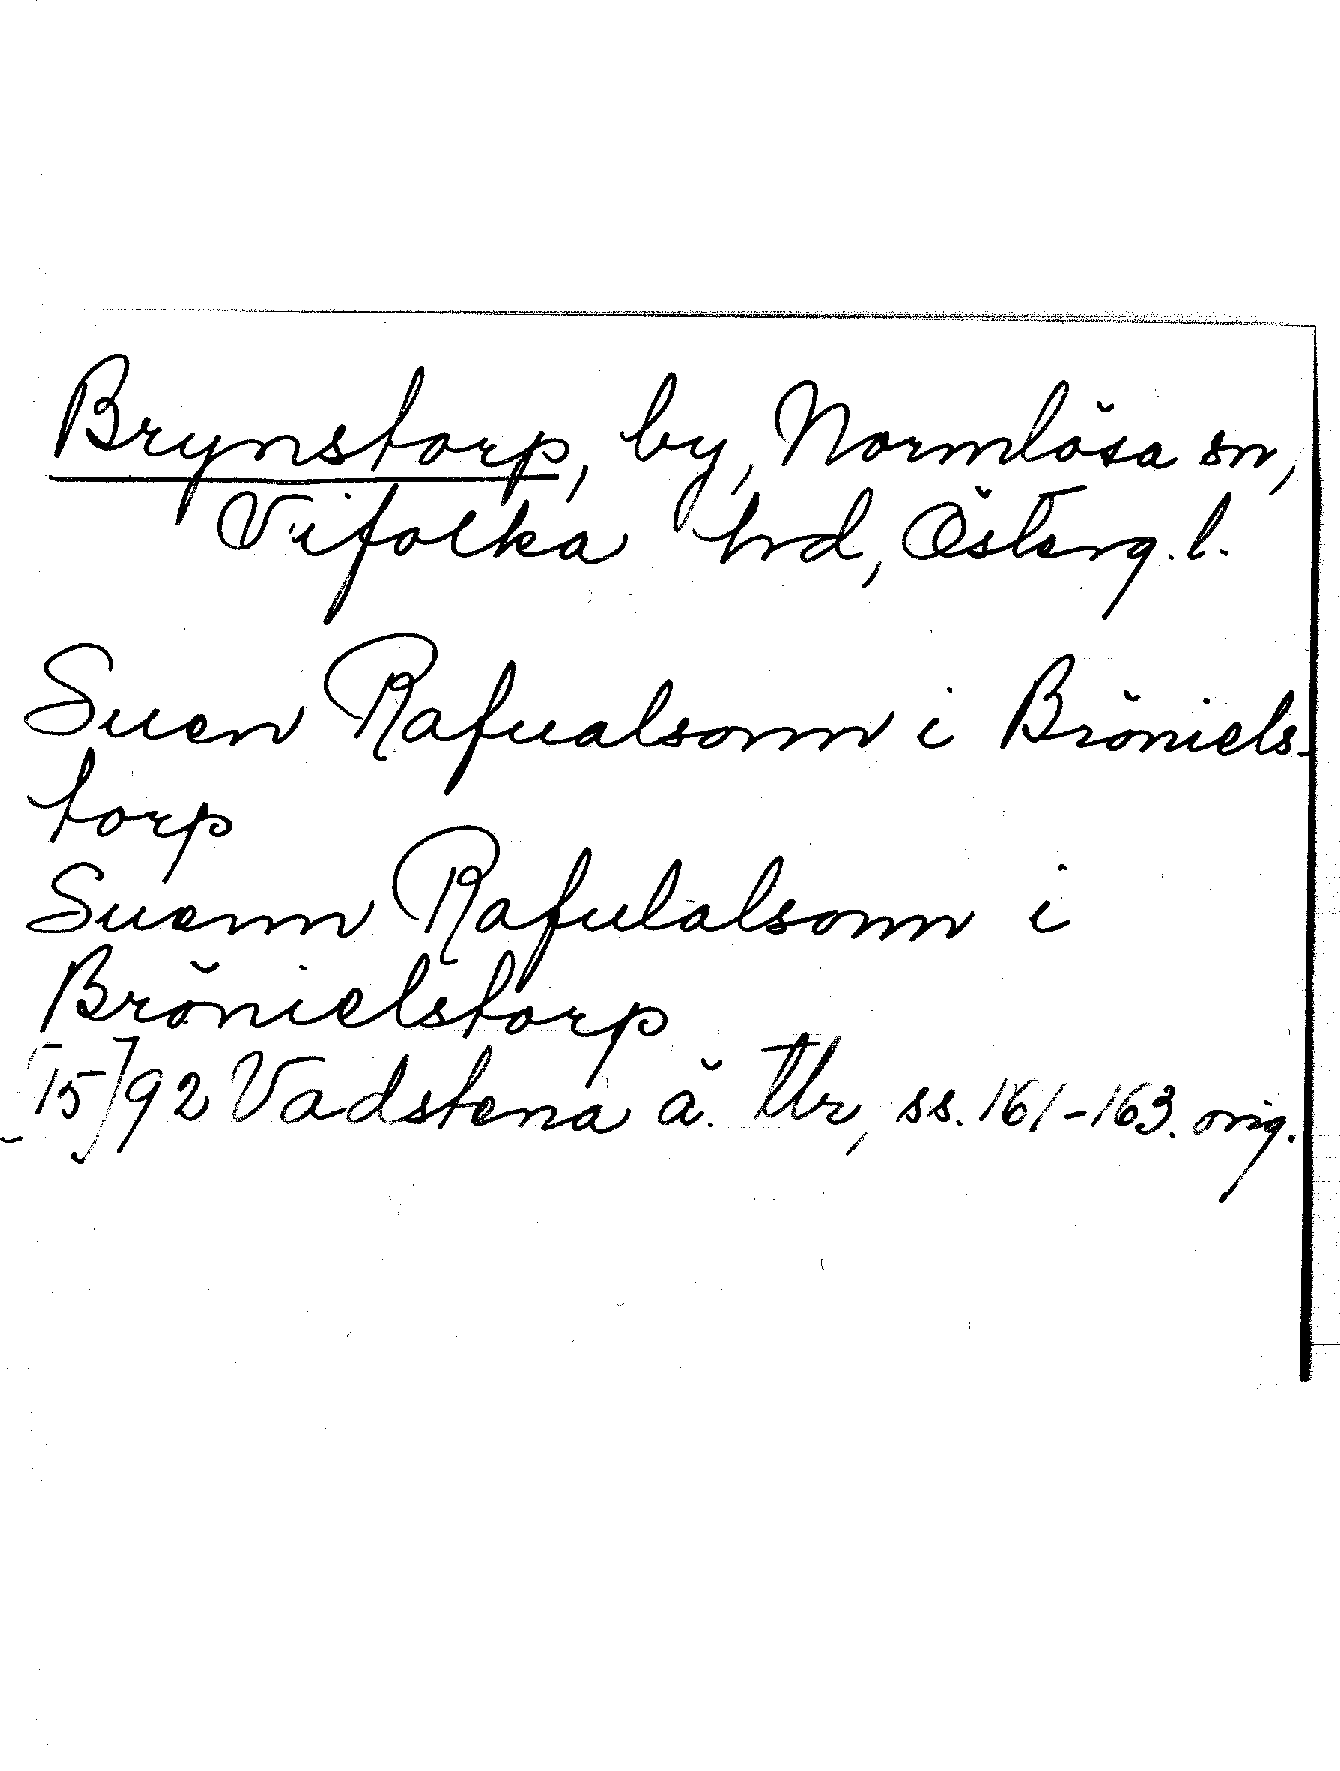 Brynstorp, by, Normlösa sn,
Vifolka hrd, Österg. l.
Suen Rafualsonn i Bröniels-
torp
Suenn Rafulalsonn i
Brönielstorp
[15]92 Vadstena ä. tlr, ss. 161-163. orig.